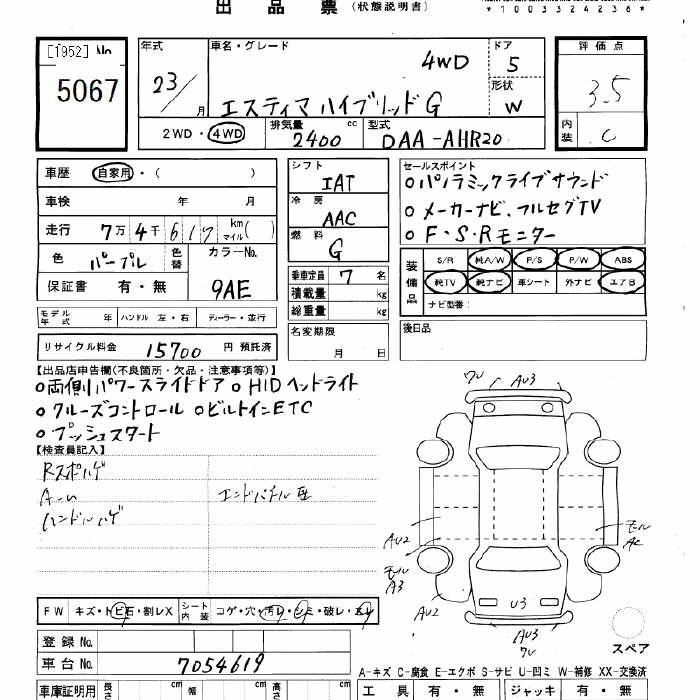 出品票（状態説明書）
*1003324236*
[1952] No
5067
年式
23/ 月
車名・グレード
4WD
エスティマ ハイブリッド G
ドア
5
形状
W
2WD・4WD
排気量 cc
2400
型式
DAA-AHR20
評価点
3.5
内装
C
車歴 自家用・（ ）
車検 年 月
走行 7万4千617 km マイル( )
色 パープル 色替
カラーNo.
9AE
保証書 有・無
シフト
IAT
冷房
AAC
燃料
G
乗車定員 7 名
積載量 kg
総重量 kg
名変期限
月 日
セールスポイント
○パノラミックライブサウンド
○メーカーナビ、フルセグTV
○F・S・Rモニター
装備品
S/R 純A/W P/S P/W ABS
純TV 純ナビ 車シート 外ナビ エアB
ナビ型番:
後日品
モデル年式 年 ハンドル 左・右 ディーラー・並行
リサイクル料金 15700 円 預託済
【出品店申告欄(不良箇所・欠品・注意事項等)】
○両側パワースライドドア ○HIDヘッドライト
○クルーズコントロール ○ビルトインETC
○プッシュスタート
【検査員記入】
Rスポハゲ
ハンドルハゲ
AU3
AU2
モール
A3
AU2
U3
AU3
モール
スペア
FW キズ・トビ石・割レX シート内装 コゲ・穴・汚レ・シミ・破レ・スレ
登録No.
車台No. 7054619
A-キズ C-腐食 E-エクボ S-サビ U-凹ミ W-補修 XX-交換済
車庫証明用 長さ cm 幅 cm 高さ cm
工具 有・無 ジャッキ 有・無